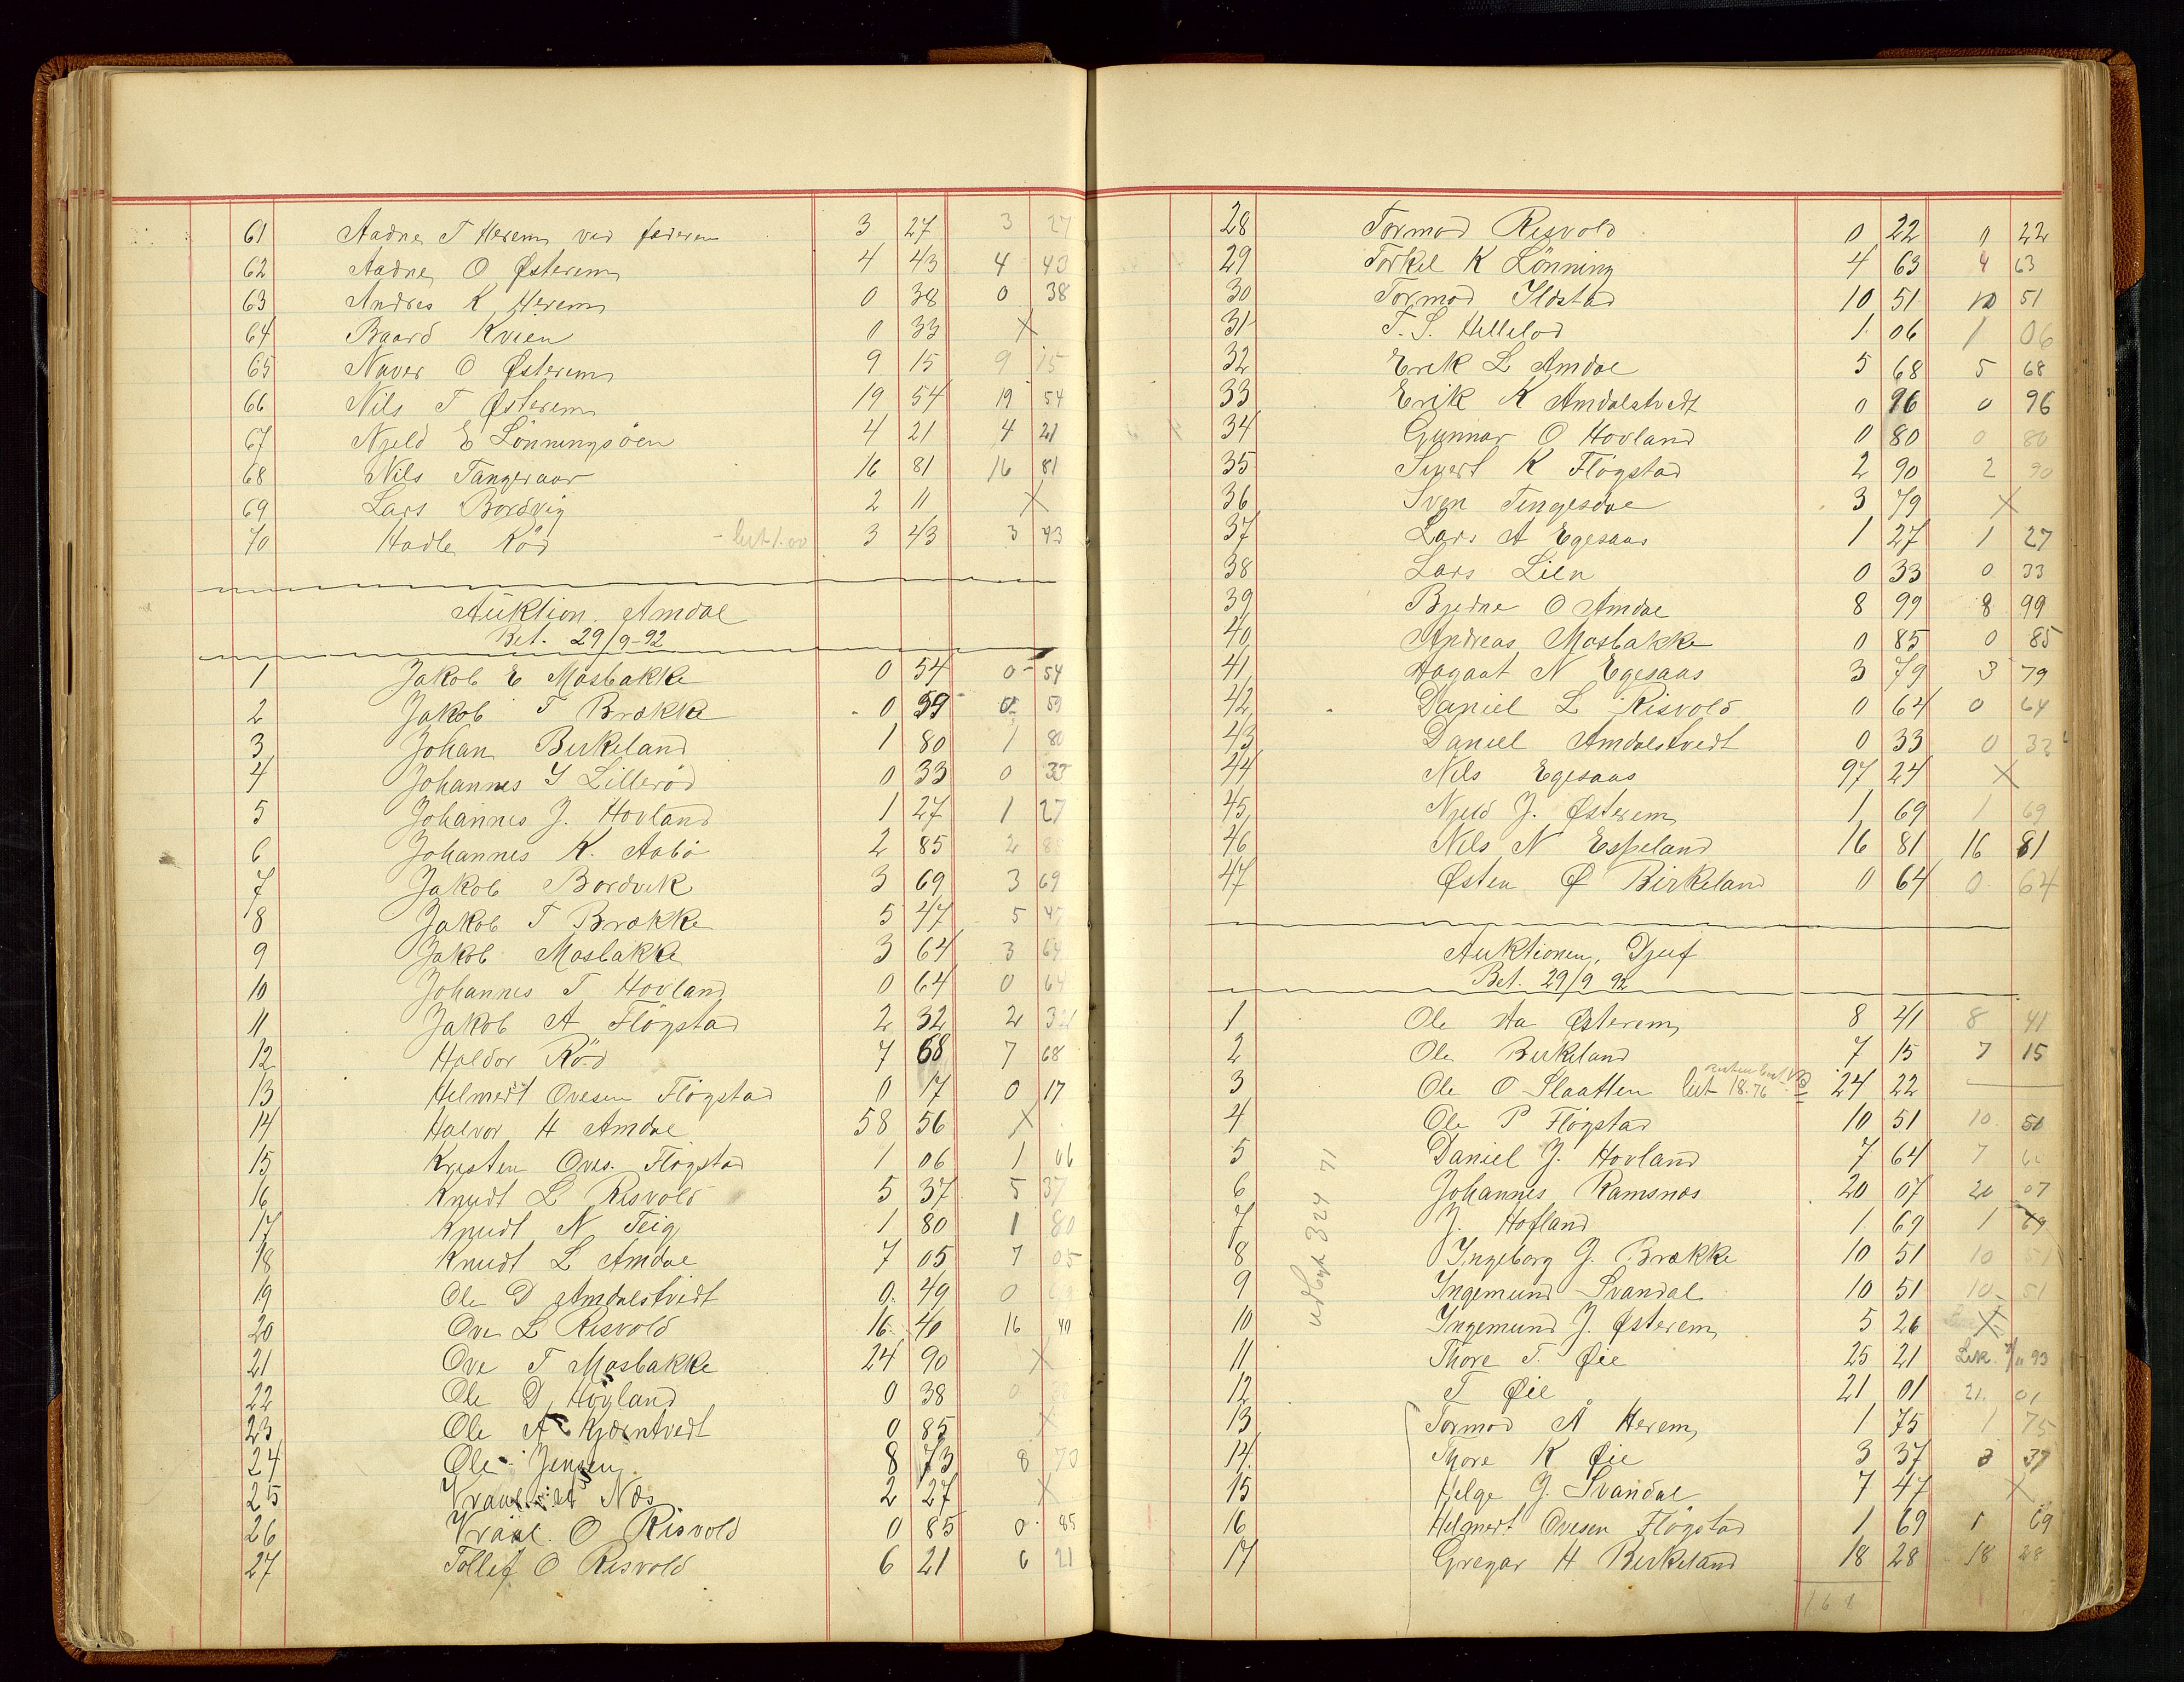 61 Aadne T Herem ved faderen 3 27 3 27
62 Aadne O Østerem 4 43 4 43
63 Andres K Herem 0 38 0 38
64 Baard Kvien 0 33 X
65 Naver O Østerem 9 15 9 15
66 Nils T Østerem 19 54 19 54
67 Njeld E Lönningsöen 4 21 4 21
68 Nils Tangeraas 16 81 16 81
69 Lars Bordvig 2 11 X
70 Hadle Röd 3 43 3 43
Auktion Amdal
Bet. 29/9-92
1 Jakob E Mosbakke 0 54 0 54
2 Jakob T Brække 0 59 0 59
3 Johan Birkeland 1 80 1 80
4 Johannes I Lilleröd 0 33 0 33
5 Johannes J. Hovland 1 27 1 27
6 Johannes K. Aabö 2 85 2 85
7 Jakob Bordvik 3 69 3 69
8 Jakob T Brække 5 47 5 47
9 Jakob Mosbakke 3 64 3 64
10 Johannes T Hovland 0 64 0 64
11 Jakob A Flögstad 2 32 2 32
12 Haldor Röd 7 68 7 68
13 Helmert Ovesen Flögstad 0 17 0 17
14 Halvor H Amdal 58 56 X
15 Kristen Oves. Flögstad 1 06 1 06
16 Knudt L Risvold 5 37 5 37
17 Knudt N Teig 1 80 1 80
18 Knudt L Amdal 7 05 7 05
19 Ole D Amdalstvedt 0 49 0
20 Ove L Risvold 16 40 16 40
21 Ove T Mosbakke 24 90 X
22 Ole D Hovland 0 38 0
23 Ole A Kjærntvedt 0 85 X
24 Ole Jensen 8 73 8 73
25 Næs 2 27 X
26 Vraal O Risvold 0 85 0 85
27 Tollef O Risvold 6 21 6 21
28 Tormod Risvold 0 22 0 22
29 Torkel K Lönning 4 63 4 63
30 Tormod Ilstad 10 51 10 51
31 T. S. Helleland 1 06 1 06
32 Erik L Amdal 5 68 5 68
33 Erik K Amdalstvedt 0 96 0 96
34 Gunnar O Hovland 0 80 0 80
35 Sivert K Flögstad 2 90 2 90
36 Sven Tengesdal 3 79 X
37 Lars A Egesaas 1 27 1 27
38 Lars Lien 0 33 0 33
39 Bjedne O Amdal 8 99 8 99
40 Andreas Mosbakke 0 85 0 85
41 Aagaat N Egesaas 3 79 3 79
42 Daniel L Risvold 0 64 0 64
43 Daniel Amdalstvedt 0 33 0 33
44 Nils Egesaas 97 24 X
45 Njeld J. Østerem 1 69 1 69
46 Nils N Espeland 16 81 16 81
47 Østen Ø Birkeland 0 64 0 64
Auktionen, Djuf
Bet. 29/9 92
1 Ole Aa Østerem 8 41 8 41
2 Ole Birkeland 7 15 7 15
3 Ole O Slaatten bet 18.76 24 22
4 Ole P Flögstad 10 51 10 51
5 Daniel J. Hovland 7 64 7 64
6 Johannes Ramsnæs 20 07 20 07
7 J. Hofland 1 69 1 69
8 Ingeborg G. Brække 10 51 10 51
9 Ingemund Svandal 10 51 10 51
10 Ingemund J. Østerem 5 26 X
11 Thore T. Øie 25 21
12 T Øie 21 01 21 01
13 Tormod A Herem 1 75 1 75
14 Thore K Øie 3 37 3 37
15 Helge G. Svandal 7 47 X
16 Helmert Ovesen Flögstad 1 69 1 69
17 Gregar H Birkeland 18 28 18 28
168
324 71